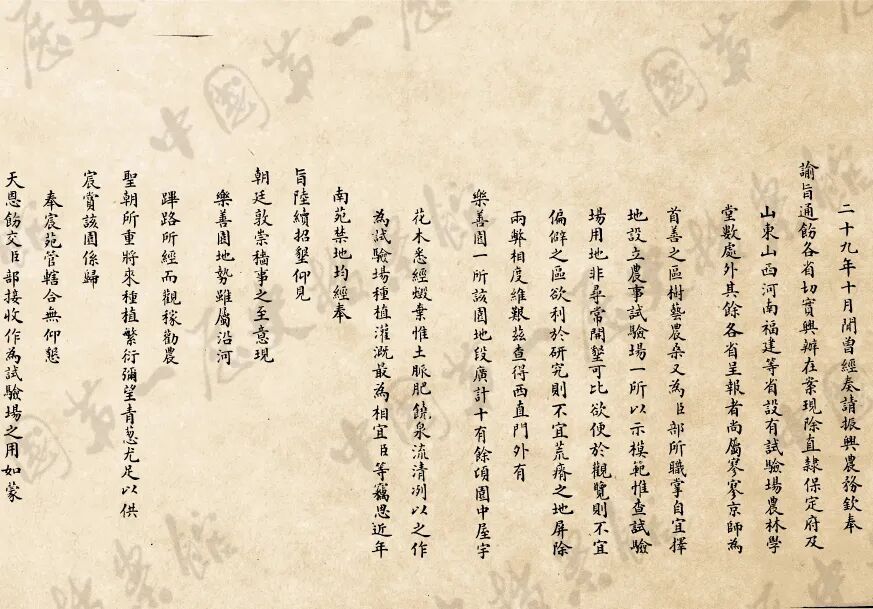 二十九年十月間曾經奏請振興農務欽奉
諭旨通飭各省切實興辦在案現除直隸保定府及
山東山西河南福建等省設有試驗場農林學
堂數處外其餘各省呈報者尚屬寥寥京師為
首善之區樹藝農桒又為臣部所職掌自宜擇
地設立農事試驗場一所以示模範惟查試驗
場用地非尋常開墾可比欲便於觀覽則不宜
偏僻之區欲利於研究則不宜荒瘠之地屏除
兩弊相度維艱茲查得西直門外有
樂善園一所該園地段廣計十有餘頃園中屋宇
花木悉經燬棄惟土脈肥饒泉流清冽以之作
為試驗場種植灌溉最為相宜臣等竊思近年
南苑禁地均經奉
旨陸續招墾仰見
朝廷敦崇穡事之至意現
樂善園地勢雖屬沿河
蹕路所經而觀稼勸農
聖朝所重將來種植繁衍彌望青蔥尤足以供
宸賞該園係歸
奉宸苑管轄合無仰懇
天恩飭交臣部接收作為試驗場之用如蒙
中國第一歷史檔案館